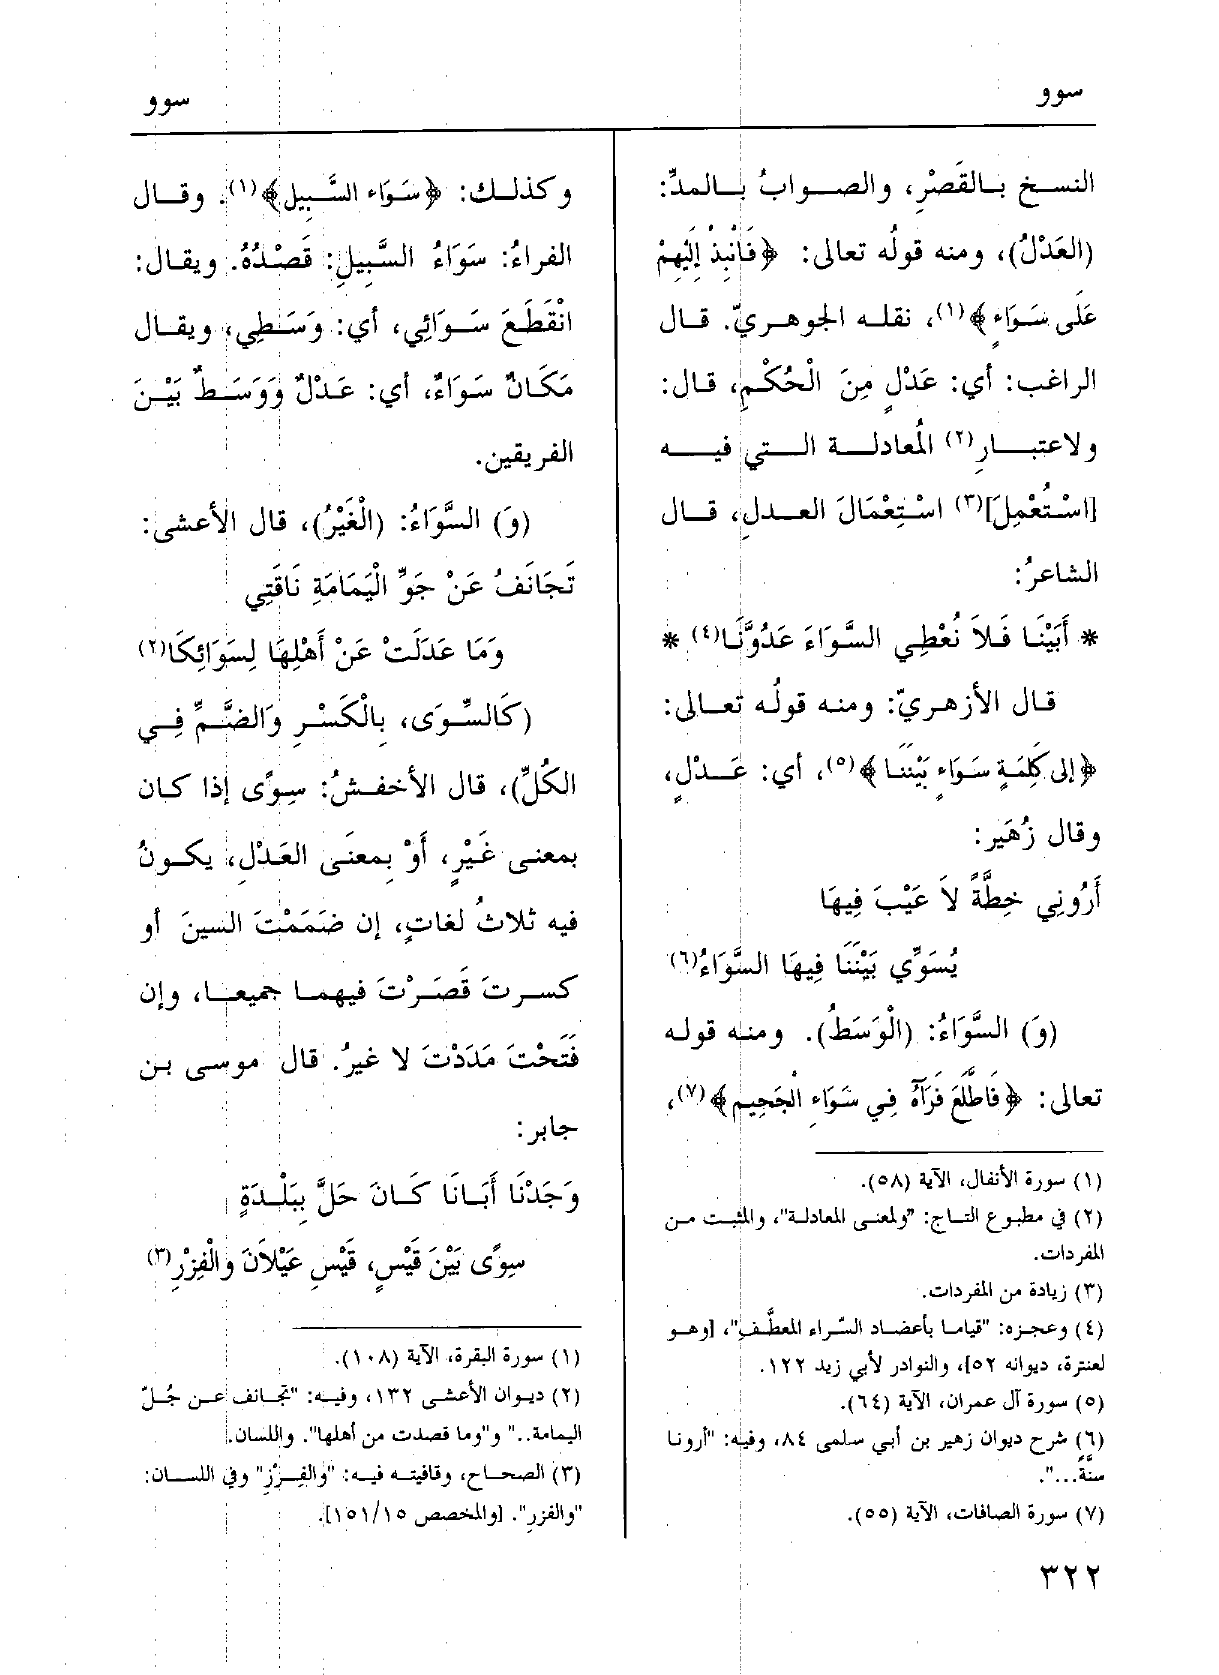 سوو
سوو
النسخ بالقَصْرِ، والصوابُ بالمدِّ:
(العَدْلُ)، ومنه قولُه تعالى: ﴿فَانْبِذْ إِلَيْهِمْ
عَلَى سَوَاءٍ﴾(١)، نقله الجوهريّ. قال
الراغب: أي: عَدْلٍ مِنَ الْحُكْمِ، قال:
ولاعتبارِ(٢) المُعادلة التي فيه
[اسْتُعْمِلَ](٣) اسْتِعْمَالَ العدلِ، قال
الشاعرُ:
* أَبَيْنَا فَلاَ نُعْطِي السَّوَاءَ عَدُوَّنَا(٤) *
قال الأزهريّ: ومنه قولُه تعالى:
﴿إلى كَلِمَةٍ سَوَاءٍ بَيْنَنَا﴾(٥)، أي: عَدْلٍ،
وقال زُهَير:
أَرُونِي خِطَّةً لاَ عَيْبَ فِيهَا
يُسَوِّي بَيْنَنَا فِيهَا السَّوَاءُ(٦)
(وَ) السَّوَاءُ: (الْوَسَطُ). ومنه قوله
تعالى: ﴿فَاطَّلَعَ فَرَآهُ فِي سَوَاءِ الْجَحِيمِ﴾(٧)،
(١) سورة الأنفال، الآية (٥٨).
(٢) في مطبوع التاج: "ولمعنى المعادلة"، والمثبت من
المفردات.
(٣) زيادة من المفردات.
(٤) وعجزه: "قياما بأعضاد السَّراء المعطَّفِ"، [وهو
لعنترة، ديوانه ٥٢]، والنوادر لأبي زيد ١٢٢.
(٥) سورة آل عمران، الآية (٦٤).
(٦) شرح ديوان زهير بن أبي سلمى ٨٤، وفيه: "أرونا
سنَّةً...".
(٧) سورة الصافات، الآية (٥٥).
وكذلك: ﴿سَوَاءَ السَّبِيلِ﴾(١). وقال
الفراءُ: سَوَاءُ السَّبِيلِ: قَصْدُهُ. ويقال:
انْقَطَعَ سَوَائِي، أي: وَسَطِي، ويقال
مَكَانٌ سَوَاءٌ، أي: عَدْلٌ وَوَسَطٌ بَيْنَ
الفريقين.
(وَ) السَّوَاءُ: (الْغَيْرُ)، قال الأعشى:
تَجَانَفُ عَنْ جَوِّ الْيَمَامَةِ نَاقَتِي
وَمَا عَدَلَتْ عَنْ أَهْلِهَا لِسَوَائِكَا(٢)
(كَالسِّوَى، بِالْكَسْرِ وَالضَّمِّ فِي
الكُلِّ)، قال الأخفشُ: سِوًى إذا كان
بمعنى غَيْرٍ، أَوْ بِمعنَى العَدْلِ، يكونُ
فيه ثلاثُ لغاتٍ، إن ضَمَمْتَ السينَ أو
كسرتَ قَصَرْتَ فيهما جميعا، وإن
فَتَحْتَ مَدَدْتَ لا غيرُ. قال موسى بن
جابر:
وَجَدْنَا أَبَانَا كَانَ حَلَّ بِبَلْدَةٍ
سِوًى بَيْنَ قَيْسٍ، قَيْسِ عَيْلاَنَ وَالْفِزْرِ(٣)
(١) سورة البقرة، الآية (١٠٨).
(٢) ديوان الأعشى ١٣٢، وفيه: "تجانف عن جُلّ
اليمامة.." و"وما قصدت من أهلها". واللسان.
(٣) الصحاح، وقافيته فيه: "والفِزْرِ" وفي اللسان:
"والفزر". [والمخصص ١٥/١٥١].
٣٢٢